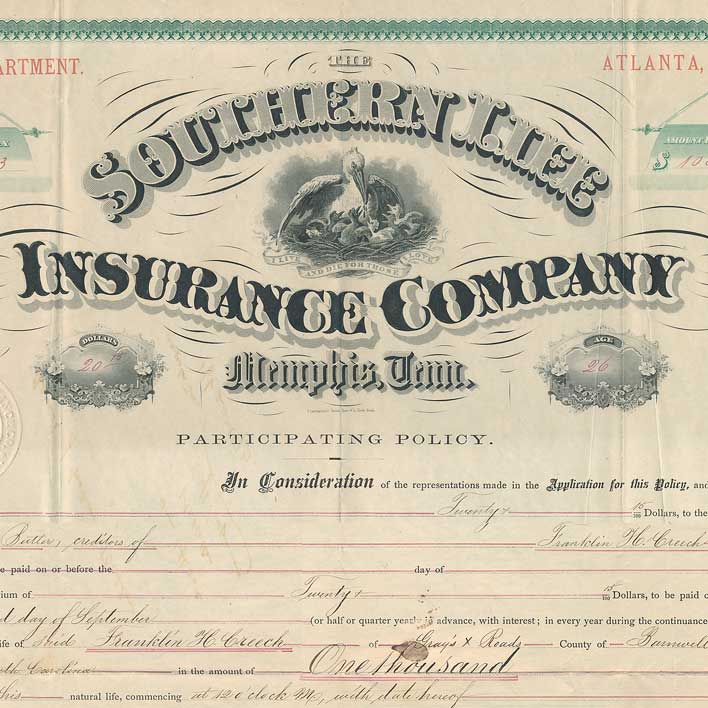 THE
ARTMENT.
ATLANTA,
SOUTHERN LIFE
AMOUNT
3
$ 10
I LIVE
AND DIE FOR THOSE
I LOVE
INSURANCE COMPANY
DOLLARS
20 15
AGE
26
Memphis, Tenn.
PARTICIPATING POLICY.
In Consideration of the representations made in the Application for this Policy, and
Twenty & 15/100 Dollars, to the
Butler, creditors of Franklin H. Creech
e paid on or before the day of
ium of Twenty & 15/100 Dollars, to be paid
d day of September (or half or quarter yearly in advance, with interest; in every year during the continuance
ife of said Franklin H Creech of Gray's X Roads County of Barnwell
th Carolina in the amount of One thousand
his natural life, commencing at 12 o'clock M, with date hereof